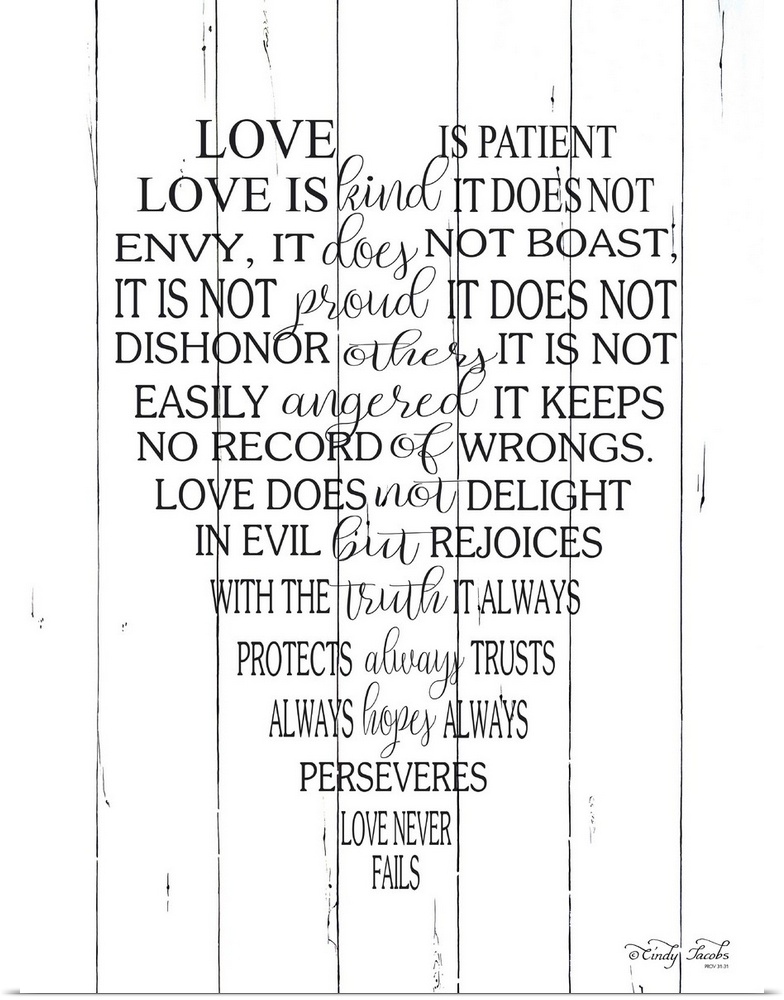 LOVE IS PATIENT
LOVE IS kind IT DOES NOT
ENVY, IT does NOT BOAST,
IT IS NOT proud IT DOES NOT
DISHONOR others IT IS NOT
EASILY angered IT KEEPS
NO RECORD of WRONGS.
LOVE DOES not DELIGHT
IN EVIL but REJOICES
WITH THE truth IT ALWAYS
PROTECTS always TRUSTS
ALWAYS hopes ALWAYS
PERSEVERES
LOVE NEVER
FAILS
©Cindy Jacobs
PROV 31:31